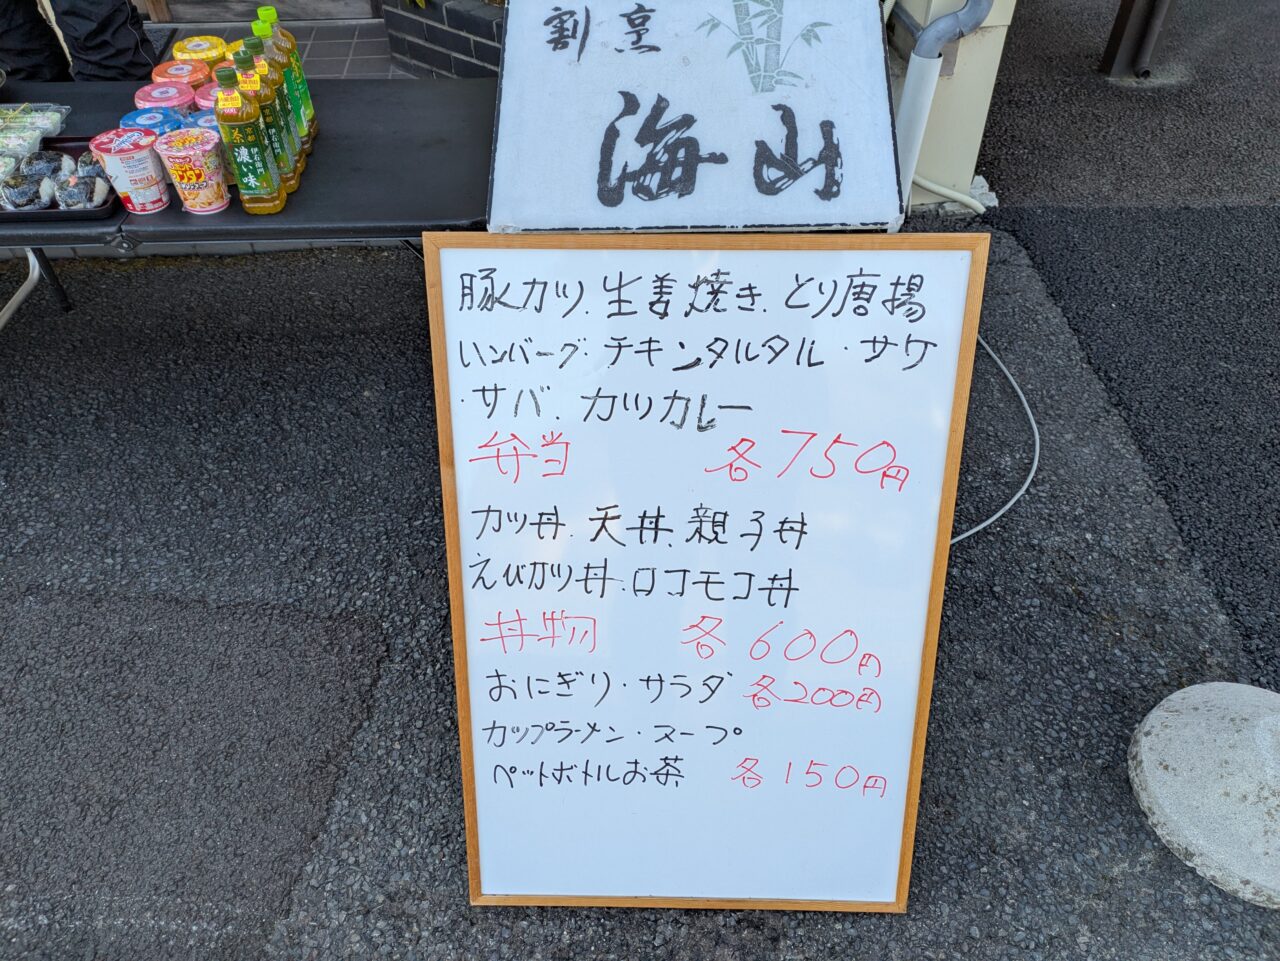 割烹
海山
豚カツ、生姜焼き、とり唐揚
ハンバーグ・チキンタルタル・サケ
・サバ、カツカレー
弁当 各750円
カツ丼、天丼、親子丼
えびカツ丼、ロコモコ丼
丼物 各600円
おにぎり・サラダ 各200円
カップラーメン・スープ
ペットボトルお茶 各150円
京都
伊右衛門
濃い味
ワンタン